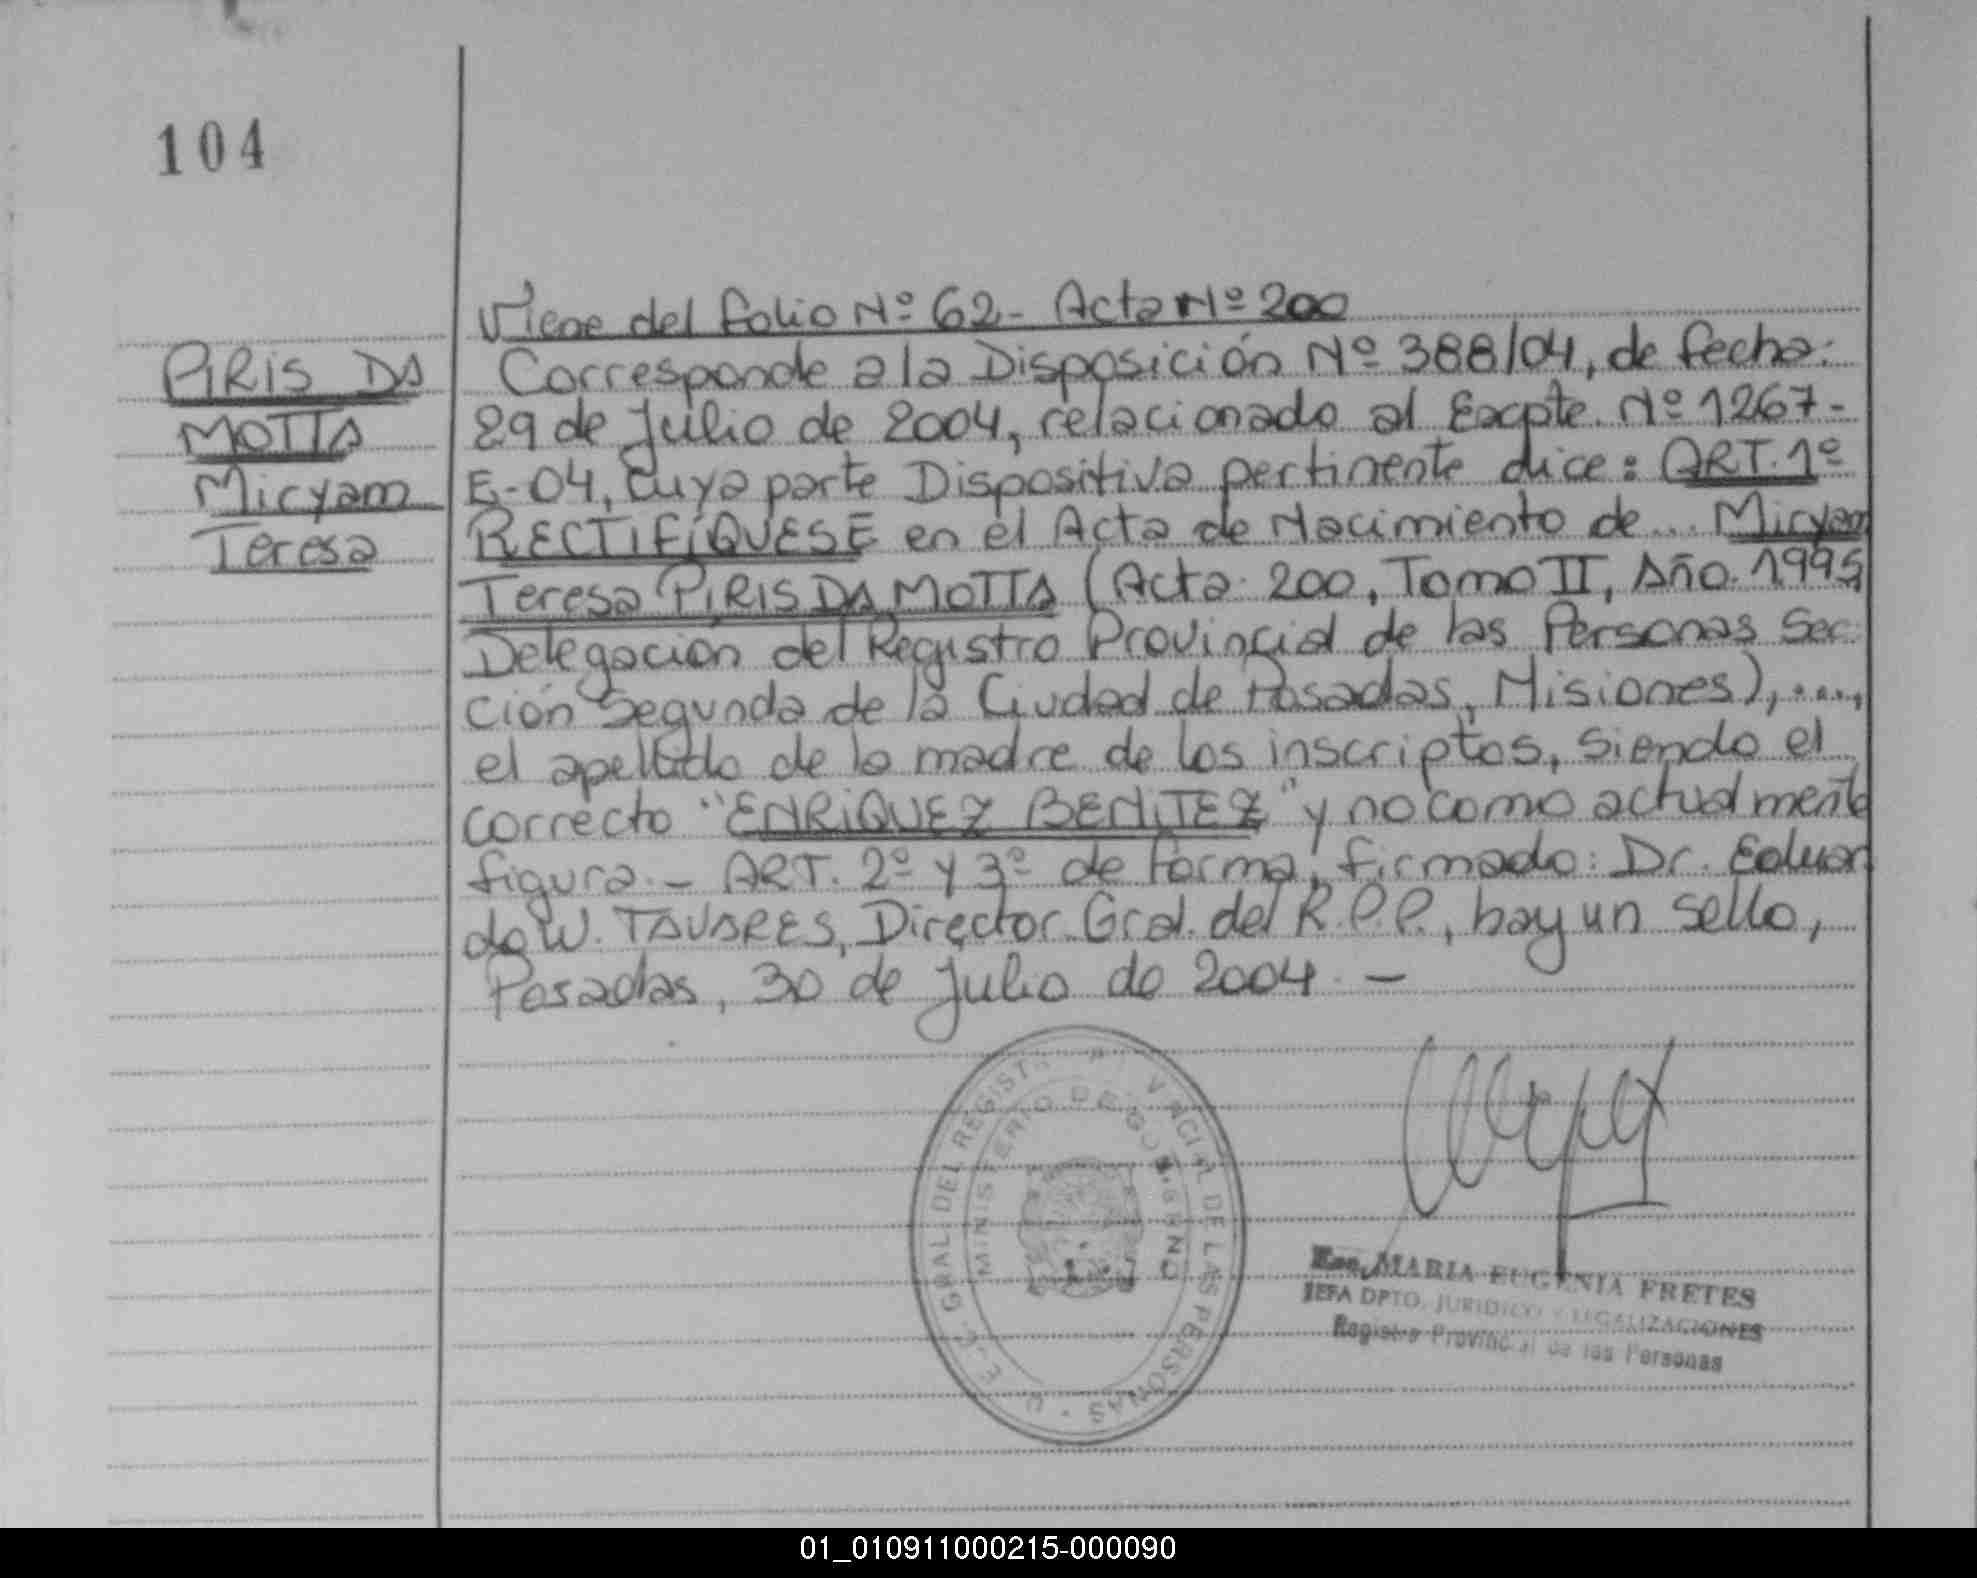 104
Viene del folio Nº 62 - Acta Nº 200
PIRIS DA
MOTTA
Miryam
Teresa
Corresponde a la Disposición Nº 388/04, de fecha:
29 de Julio de 2004, relacionado al Excpte. Nº 1267-
E-04, cuya parte Dispositiva pertinente dice: ART. 1º
RECTIFÍQUESE en el Acta de Nacimiento de... Miryam
Teresa PIRIS DA MOTTA (Acta 200, Tomo II, Año 1995,
Delegación del Registro Provincial de las Personas Sec
ción Segunda de la Ciudad de Posadas, Misiones), ....,
el apellido de la madre de los inscriptos, siendo el
correcto "ENRIQUEZ BENITEZ" y no como actualmente
figura.- ART. 2º y 3º de forma, firmado: Dr. Eduar
do W. TAVARES, Director Gral. del R.P.P., hay un sello,
Posadas, 30 de Julio de 2004. -
GRAL DEL REGIST VINCIAL DE LAS PERSONAS
MINISTERIO DE GOBIERNO
Esc. MARIA EUGENIA FRETES
JEFA DPTO. JURIDICO Y LEGALIZACIONES
Registro Provincial de las Personas
01_010911000215-000090